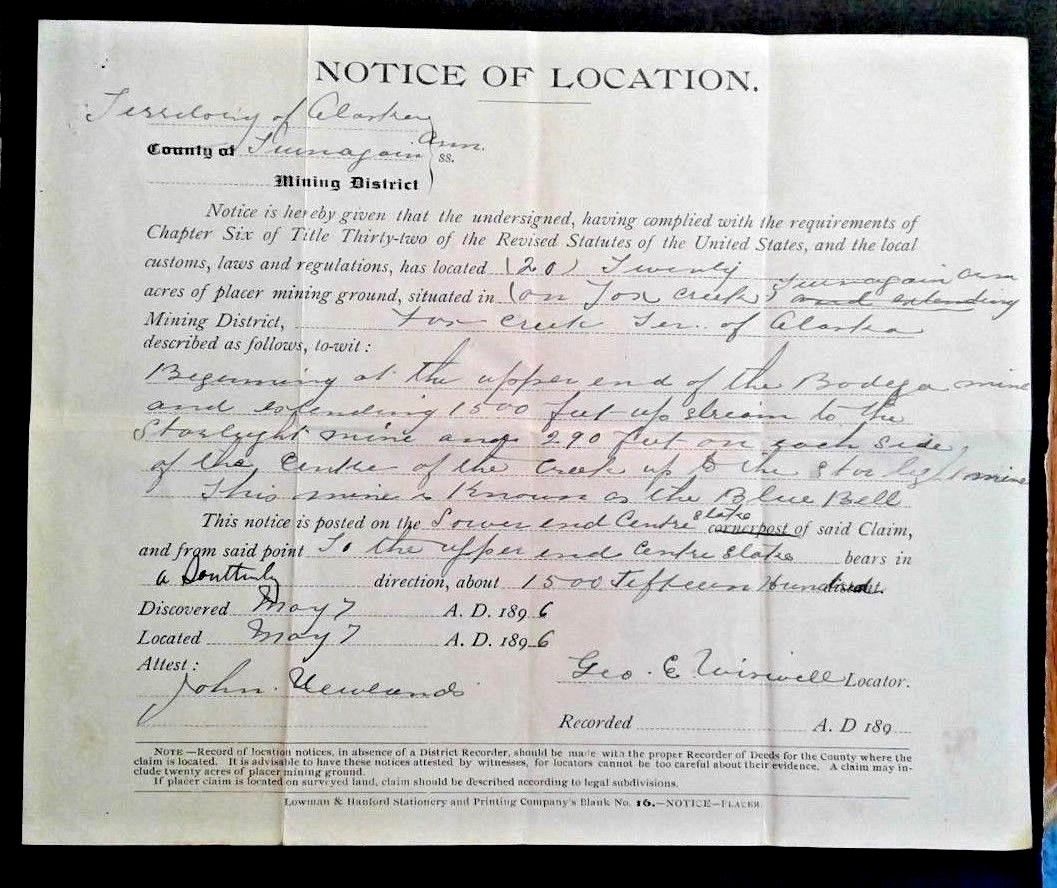 NOTICE OF LOCATION.
Territory of Alaska
County of Turnagain Arm.
ss.
Mining District
Notice is hereby given that the undersigned, having complied with the requirements of
Chapter Six of Title Thirty-two of the Revised Statutes of the United States, and the local
customs, laws and regulations, has located (20) Twenty
acres of placer mining ground, situated in (on Fox Creek) and extending Turnagain Arm
Mining District, Fox Creek Ter. of Alaska
described as follows, to-wit:
Beginning at the upper end of the Bodega mine
and extending 1500 feet up stream to the
Starlight mine and 290 feet on each side
of the Centre of the Creek up to the Starlight mine
This mine is Known as the Blue Bell
This notice is posted on the Lower end Centre stake corner post of said Claim,
and from said point To the upper end Centre Stake bears in
a Southerly direction, about 1500 Fifteen Hundred
Discovered May 7 A. D. 1896
Located May 7 A. D. 1896
Attest:
John Newlands
Geo. E. Wiswell Locator.
Recorded A. D 189
NOTE—Record of location notices, in absence of a District Recorder, should be made with the proper Recorder of Deeds for the County where the
claim is located. It is advisable to have these notices attested by witnesses, for locators cannot be too careful about their evidence. A claim may in-
clude twenty acres of placer mining ground.
If placer claim is located on surveyed land, claim should be described according to legal subdivisions.
Lowman & Hanford Stationery and Printing Company's Blank No. 16.—NOTICE—PLACER.